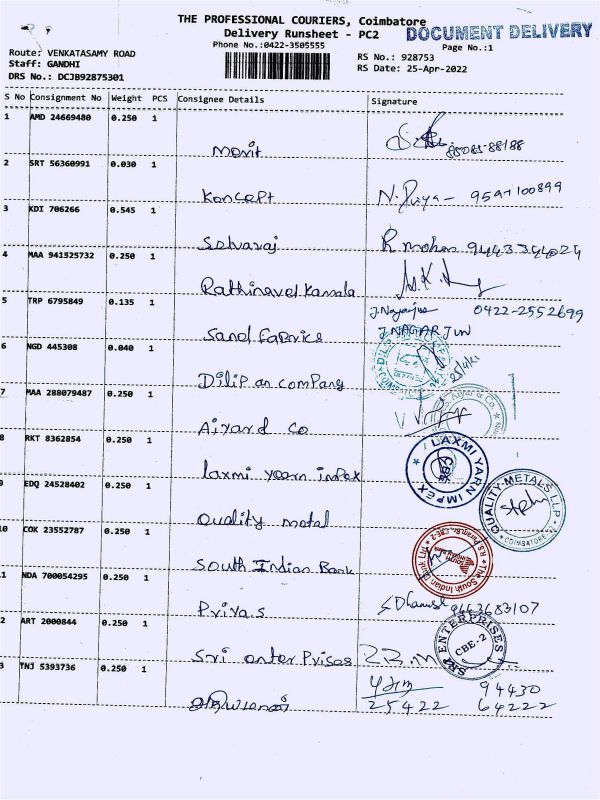 THE PROFESSIONAL COURIERS, Coimbatore
Delivery Runsheet - PC2
DOCUMENT DELIVERY
Phone No.:0422-3505555
Page No.:1
Route: VENKATASAMY ROAD
RS No.: 928753
Staff: GANDHI
RS Date: 25-Apr-2022
DRS No.: DCJB92875301
S No Consignment No Weight PCS Consignee Details Signature
1 AMD 24669480 0.250 1
Monit 85085-88188
2 SRT 56360991 0.030 1
Koncept N. Priya - 9597100899
3 KDI 706266 0.545 1
Selvaraj R mohan 9443344024
4 MAA 941525732 0.250 1
Rathinavel Kamala
5 TRP 6795849 0.135 1 0422-2552699
Sand Fabrics J.NAGARJUN
6 NGD 445308 0.040 1
Dilip an company
7 MAA 288079487 0.250 1 Aiyar & Co.
Aiyard Co
8 RKT 8362854 0.250 1
laxmi yarn impex LAXMI YARN IMPEX CBE
9 EDQ 24528402 0.250 1
Quality metal QUALITY METALS LLP COIMBATORE
10 COK 23552787 0.250 1
South Indian Bank The South Indian Bank Ltd
11 NDA 700054295 0.250 1
Priya.s 9443683107
2 ART 2000844 0.250 1
Sri enterprises SRI ENTERPRISES CBE-2
3 TNJ 5393736 0.250 1
94430
25422 64222